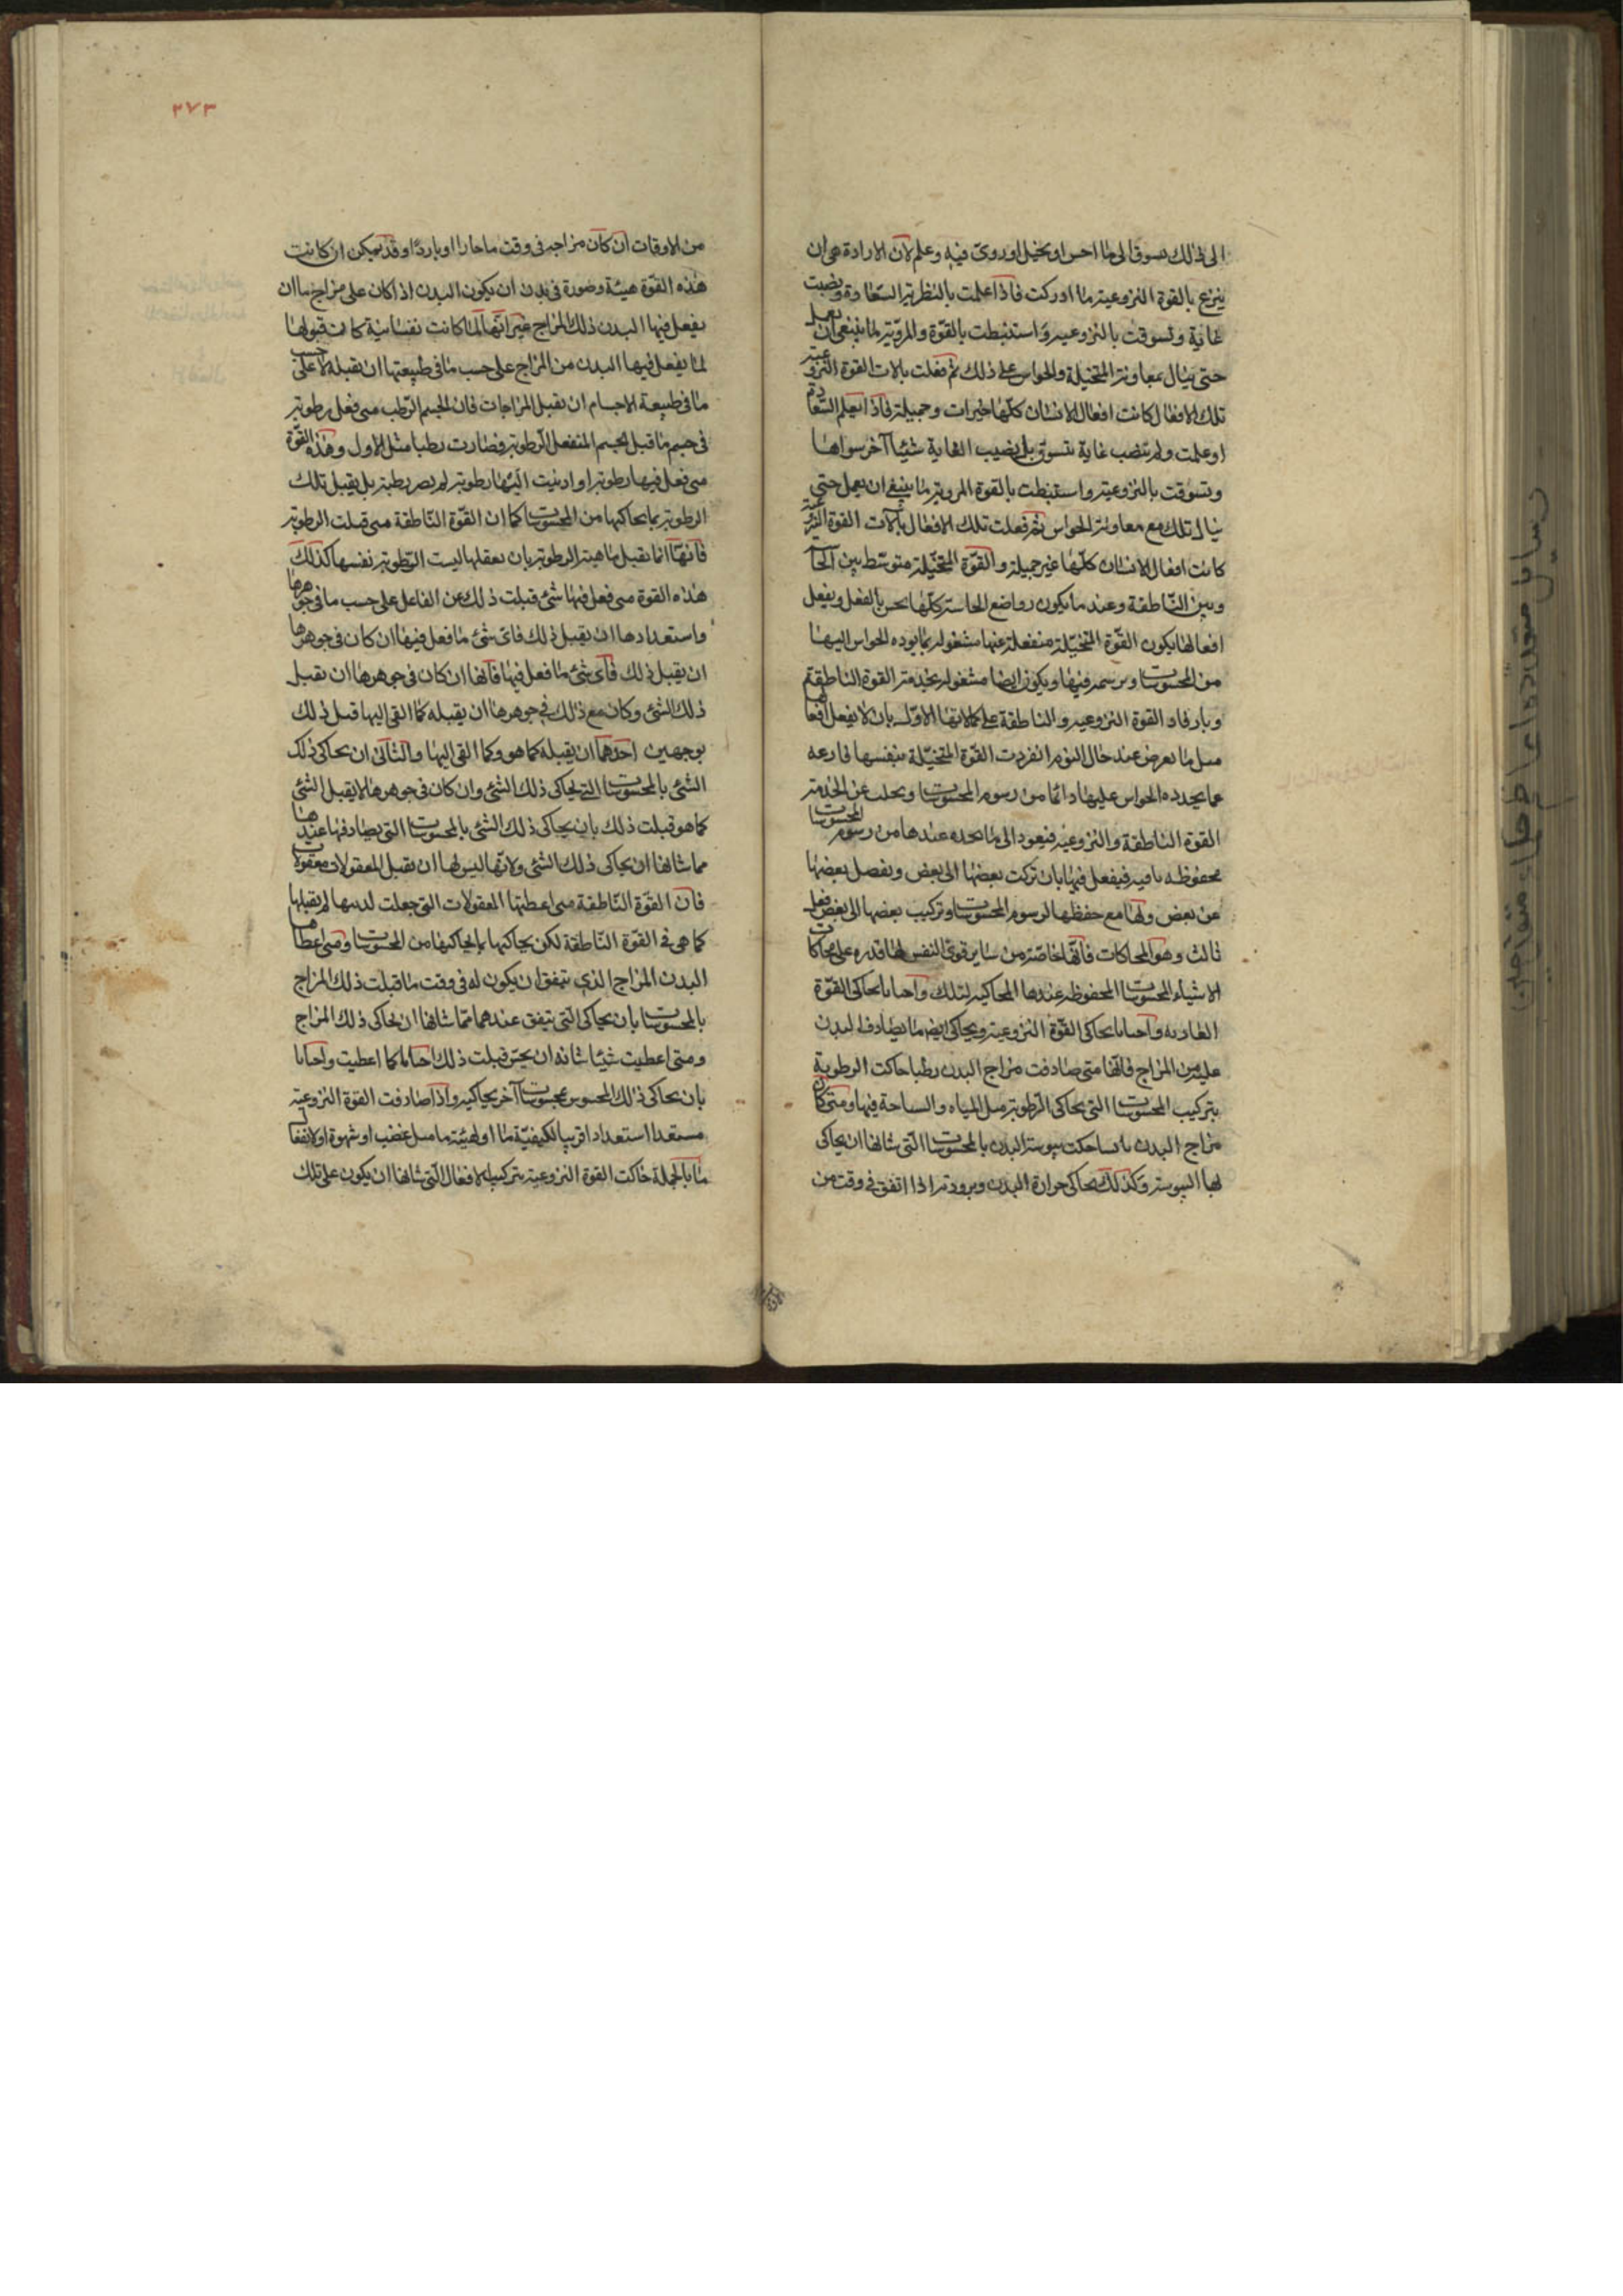 الى ذلك تسوق الى ما احس او تخيل او روى فيه وعلم لان الارادة هى ان
ينزع بالقوة النزوعية ما ادركت فاذا علمت بالنظرية السعادة ونصبت
غاية وتسوقت بالنزوعيه واستنبطت بالقوة والمروية لما ينبغى ان يعمل
حتى ينال بمعاونة المتخيلة والحواس على ذلك ثم فعلت بالات القوة النزوعية
تلك الافعال كانت افعال الانسان كلها خيرات وجميلة فاذا لم يعلم السعادة
او علمت ولم تنصب غاية بتسوق بل نصيب الغاية شيئا آخر سواها
وتسوقت بالنزوعية واستنبطت بالقوة المروية ما ينبغى ان يعمل حتى
ينال تلك مع معاونة الحواس ثم فعلت تلك الافعال بآلات القوة النزوعية
كانت افعال الانسان كلها غير جميلة والقوة المتخيلة متوسط بين الحاسة
وبين الناطقة وعند ما يكون رواضع الحاسة كلها تحس بالفعل ويفعل
افعالها يكون القوة المتخيلة منفعلة عنها مشغولة بما يورده الحواس اليها
من المحسوسات ويرسمه فيها ويكون ايضا مشغولة بخدمة القوة الناطقة
وبارفاد القوة النزوعيه والناطقة على كمالاتها الاول بان لا يفعل افعالها
مثل ما يعرض عند حال النوم انفردت القوة المتخيلة بنفسها فارغه
عما يجدده الحواس عليها دائما من رسوم المحسوسات وتخلت عن الخدمة
القوة الناطقة والنزوعية فيعود الى ما يجده عندها من رسوم المحسوسات
محفوظه باقيه فيفعل فيها بان تركب بعضها الى بعض وتفصل بعضها
عن بعض ولها مع حفظها لرسوم المحسوسات وتركيب بعضها الى بعض فعل
ثالث وهو المحاكات فانها خاصة من ساير قوى النفس لها قدره على محاكات
الاشياء المحسوسات المحفوظة عندها المحاكية لتلك واحيانا تحاكى القوة
الغاديه واحيانا يحاكى القوة النزوعية ويحاكى ايضا ما يصادف البدن
عليه من المزاج فانها متى صادفت مزاج البدن رطبا حاكت الرطوبة
بتركيب المحسوسات التى يحاكى الرطوبة مثل المياه والسباحة فيها ومتى كان
مزاج البدن يابسا حكت يبوسة البدن بالمحسوسات التى شانها ان يحاكى
بها اليبوسة وكذلك يحاكى حرارة البدن وبرودته اذا اتفق فى وقت من
٢٧٣
من الاوقات ان كان مزاجه فى وقت ما حارا او باردا وقد يمكن ان كانت
هذه القوة هيئة وصورة فى بدن ان يكون البدن اذا كان على مزاج ما ان
يفعل فيها البدن ذلك المزاج غير انها لما كانت نفسانية كانت قبولها
لما يفعل فيها البدن من المزاج على حسب ما فى طبيعتها ان تقبله لا على حسب
ما فى طبيعة الاجسام ان تقبل المزاجات فان الجسم الرطب متى فعل رطوبة
فى جسم ما قبل الجسم المنفعل الرطوبة فصارت رطبا مثل الاول وهذه القوة
متى فعل فيها رطوبة او ادنيت اليها رطوبة لم يصر رطبة بل يقبل تلك
الرطوبة بما يحاكيها من المحسوسات كما ان القوة الناطقة متى قبلت الرطوبة
فانها انما تقبل ماهية الرطوبة بان تعقلها ليست الرطوبة نفسها كذلك
هذه القوة متى فعل فيها شئ قبلت ذلك عن الفاعل على حسب ما فى جوهرها
واستعدادها ان يقبل ذلك فاى شئ ما فعل فيها ان كان فى جوهرها
ان يقبل ذلك فاى شئ ما فعل فيها فانها ان كان فى جوهرها ان تقبل
ذلك الشئ وكان مع ذلك فى جوهرها ان يقبله كما القى اليها قبل ذلك
بوجهين احدهما ان يقبله كما هو وكما القى اليها والثانى ان يحاكى ذلك
الشئ بالمحسوسات التى يحاكى ذلك الشئ وان كان فى جوهرها لا يقبل الشئ
كما هو قبلت ذلك بان يحاكى ذلك الشئ بالمحسوسات التى يصادفها عندها
مما شانها ان يحاكى ذلك الشئ ولانها ليس لها ان تقبل المعقولات معقولات
فان القوة الناطقة متى اعطيتها المعقولات التى جعلت لديها لم يقبلها
كما هى فى القوة الناطقة لكن يحاكيها بما يحاكيها من المحسوسات ومتى اعطاها
البدن المزاج الذى يتفق ان يكون له فى وقت ما قبلت ذلك المزاج
بالمحسوسات بان يحاكى التى يتفق عندها مما شانها ان يحاكى ذلك المزاج
ومتى اعطيت شيئا شانه ان يحس قبلت ذلك احيانا كما اعطيت واحيانا
بان يحاكى ذلك المحسوس بمحسوسات آخر يحاكيه واذا صادفت القوة النزوعية
مستعدا استعدادا قريبا لكيفية ما او لهيئة ما مثل غضب او شهوة او لانفعال
ما بالجملة حاكت القوة النزوعية بتركيب الافعال التى شانها ان يكون على تلك